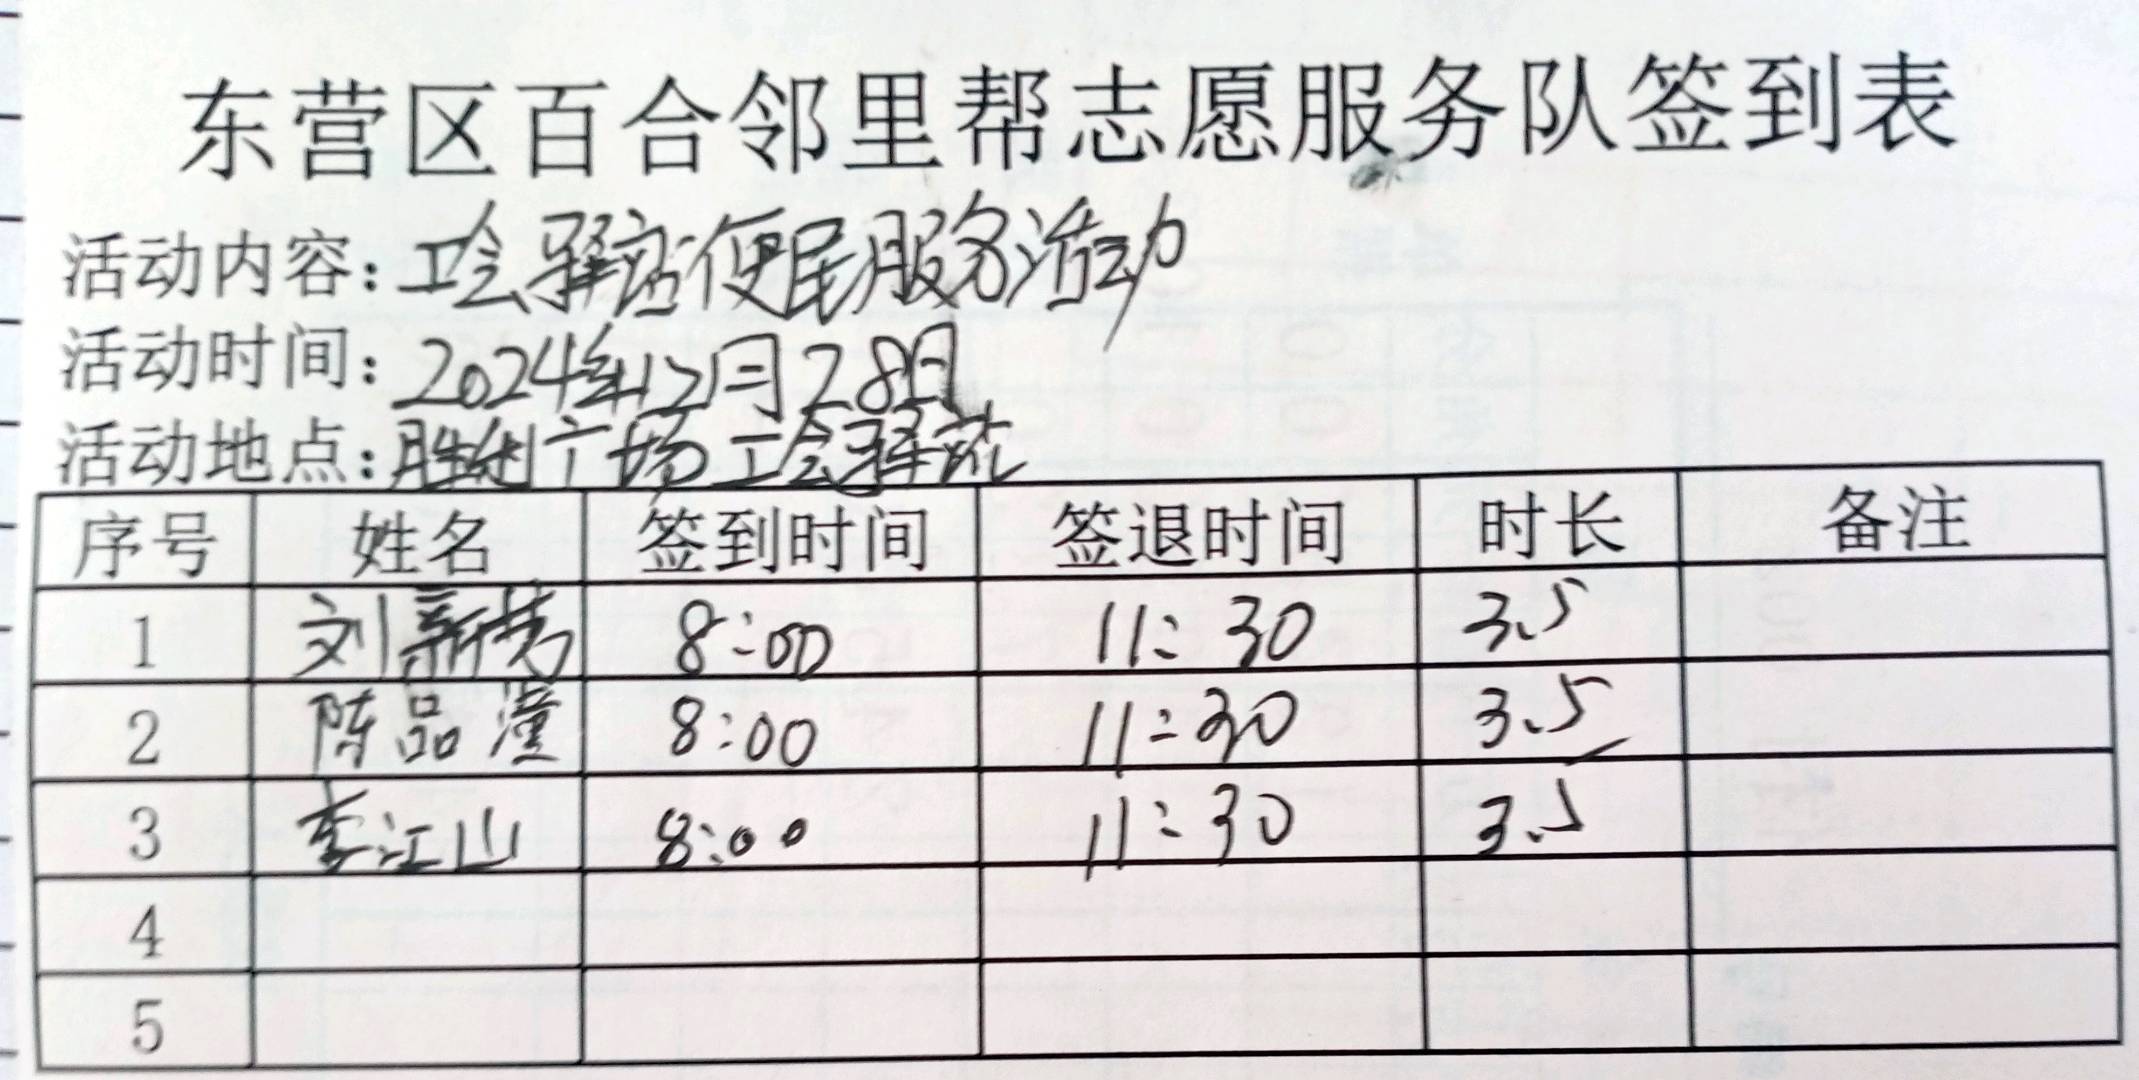 东营区百合邻里帮志愿服务队签到表
活动内容：工会驿站便民服务活动
活动时间：2024年12月28日
活动地点：胜利广场工会驿站
序号 姓名 签到时间 签退时间 时长 备注
1 刘新芳 8:00 11:30 3.5
2 陈品潼 8:00 11:30 3.5
3 李江山 8:00 11:30 3.5
4
5